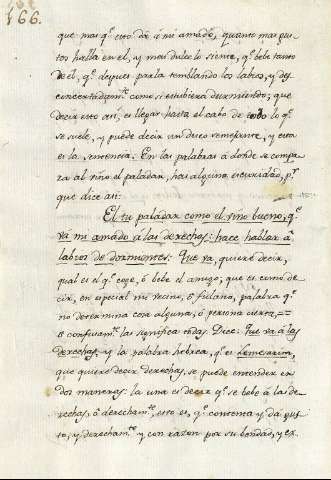 166.
que mas q.e esto da à mi amado, quanto mas gus-
tos halla en el, y mas dulce lo siente, q.e bebe tanto
de él, q.e depues parla temblando los labios, y des
concertadam.te como si estubiera durmiendo; que
decir esto asi, es llegar hasta el cabo de todo lo q.e
se suele, y puede decir un deseo semejante, y esta
es la sentencia. En las palabras a donde se compa-
ra al vino el paladar, hai alguna escuridad, p.r
que dice asi:
El tu paladar como el vino bueno, q.e
va mi amado à las derechas: hace hablar à
labios de dormientes: Que va, quiere decir,
qual es el q.e coje, ò bebe el amigo; que es como de
cir, en especial mi vecino, ò fulano, palabra q.e
no determina cosa alguna, ò persona cierta, =
ò confusam.te las significa todas. Dice: Que va à las
derechas, y la palabra hebrea, q.e es
que quiere decir derechas, se puede entender en
dos maneras: la una es decir q.e se bebe à las de-
rechas, ò derecham.te, esto es, q.e contenta y dà gus-
to, y derecham.te y con razon por su bondad, y ex-